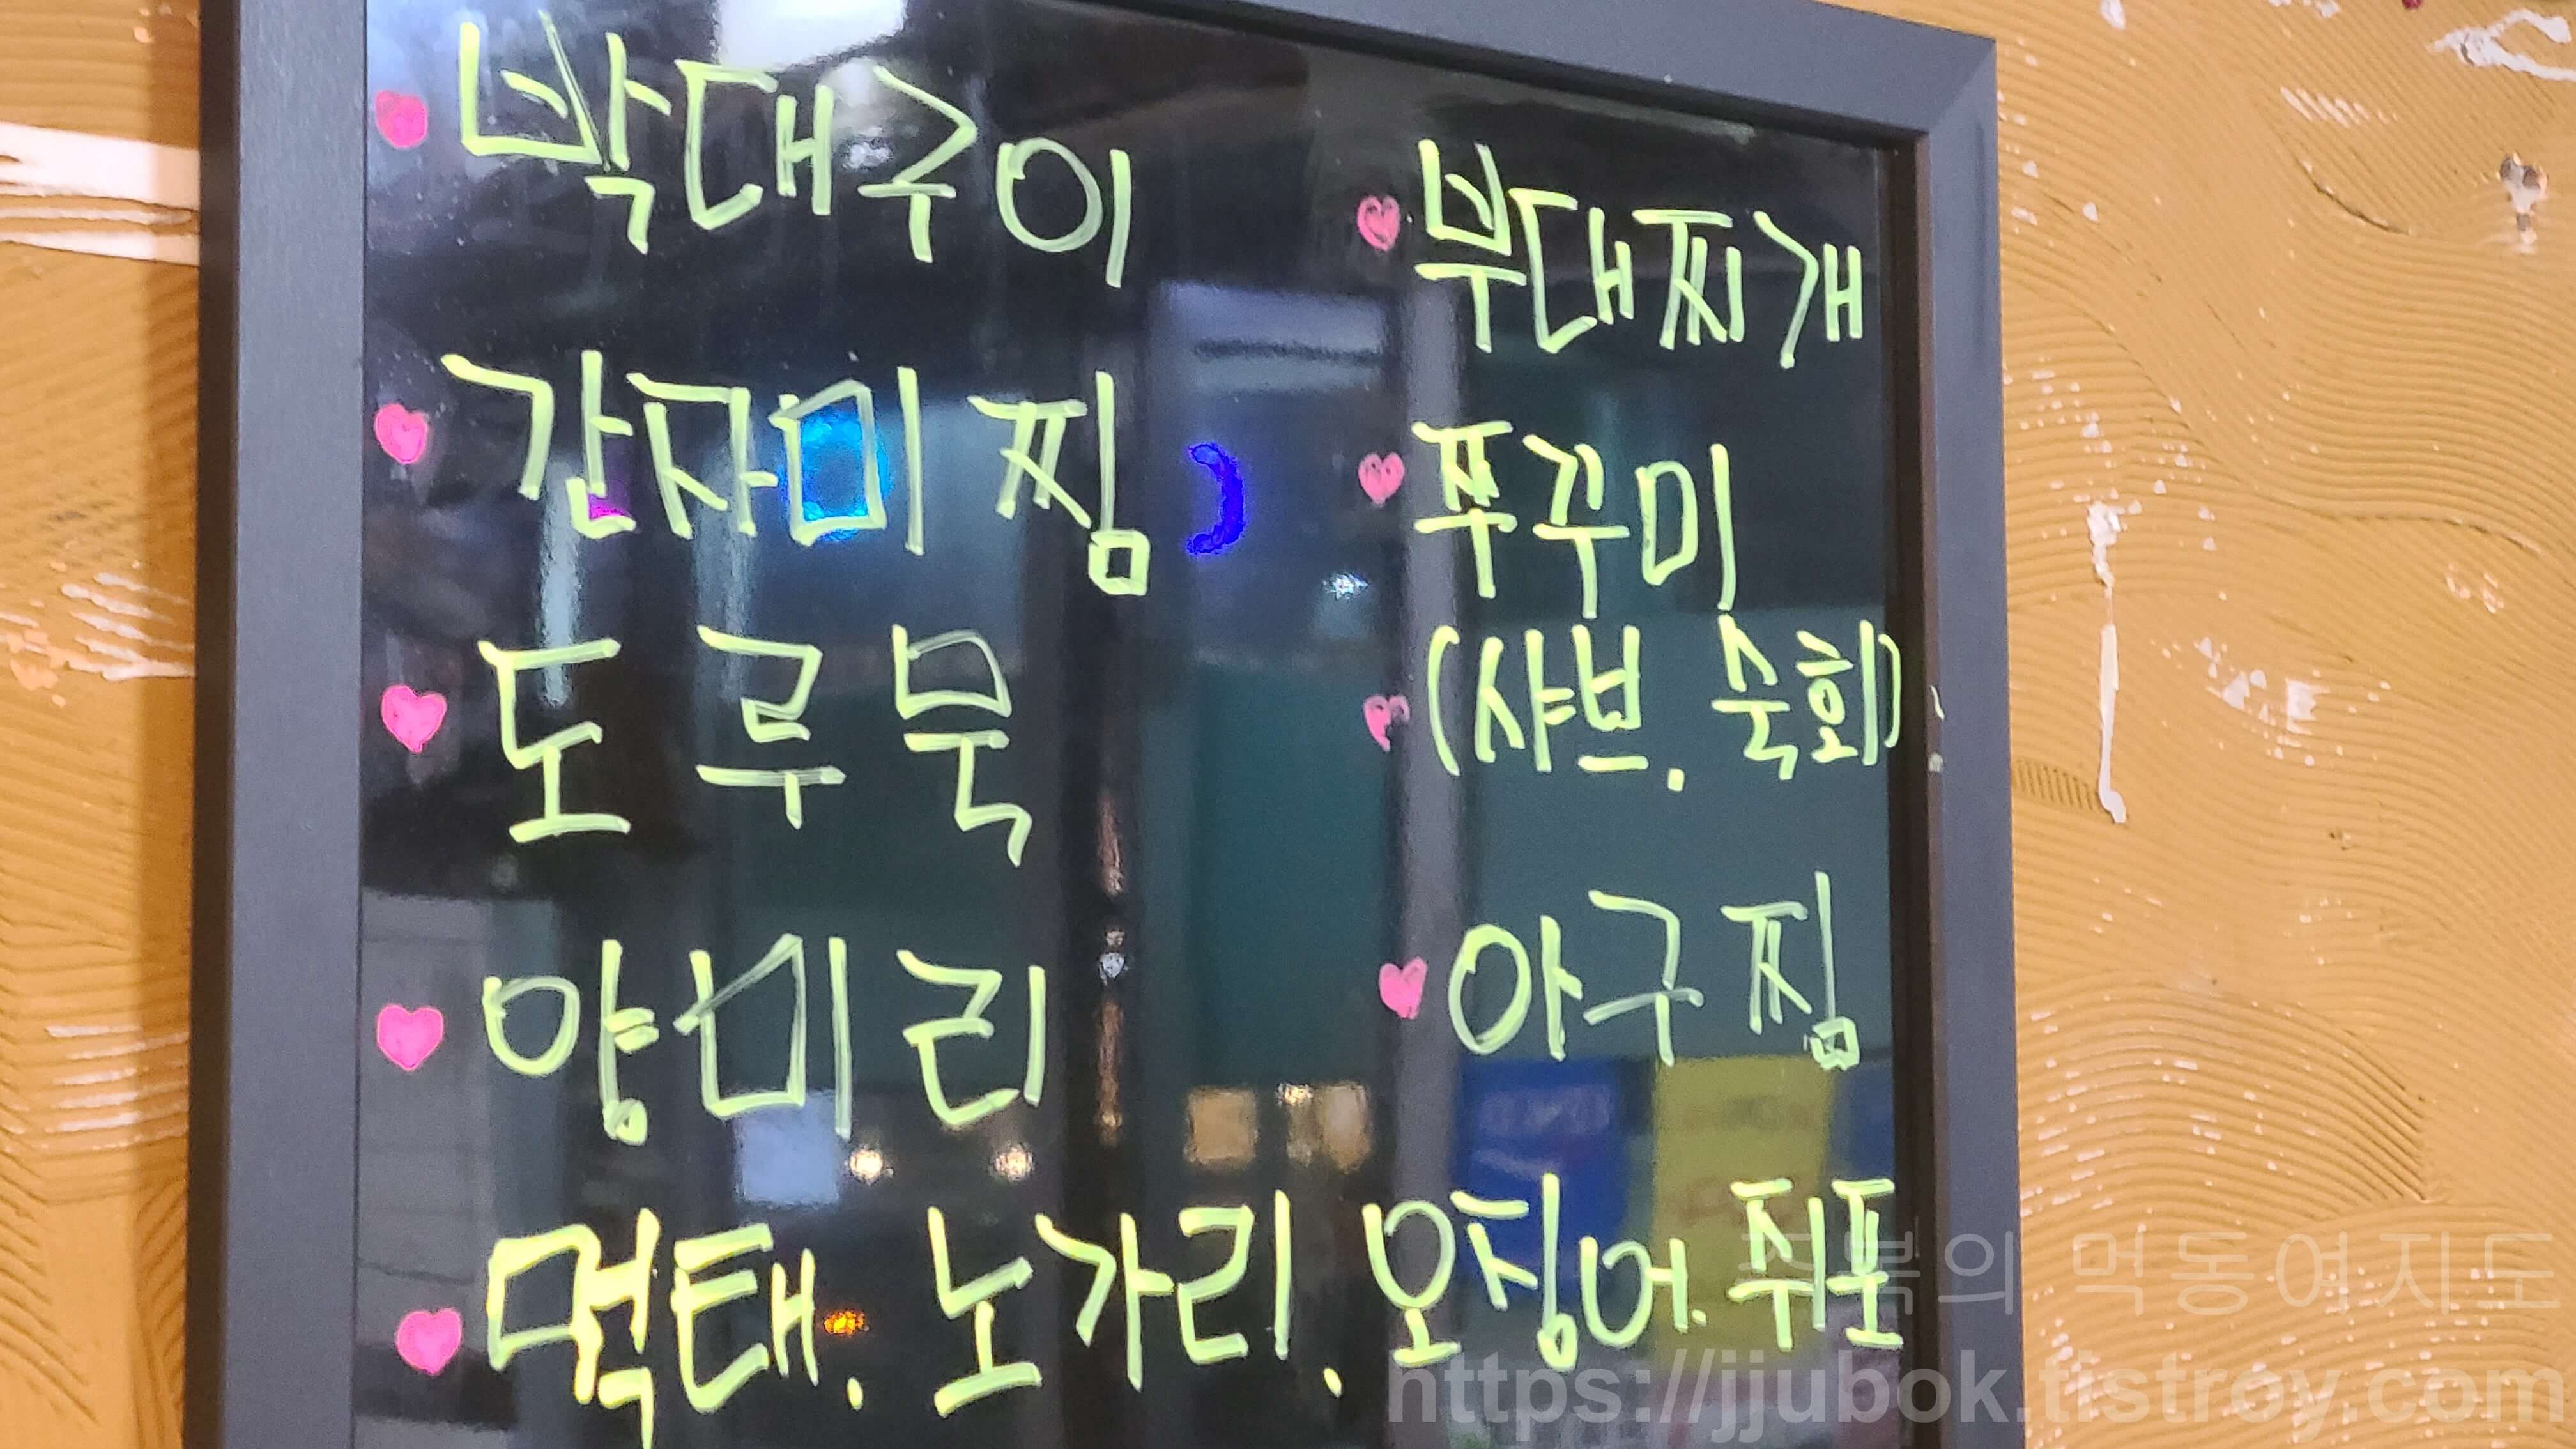 박대구이
간자미 찜
도루묵
양미리
부대찌개
쭈꾸미
(샤브. 숙회)
아구찜
먹태. 노가리. 오징어. 쥐포
먹동여지도
https://jjubok.tistroy.com